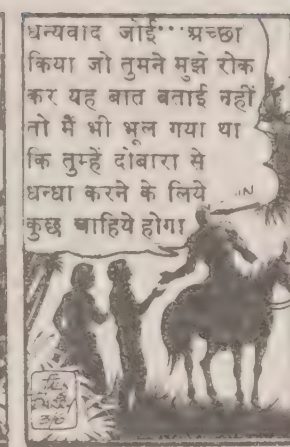 धन्यवाद जोई··· अच्छा
किया जो तुमने मुझे रोक
कर यह बात बताई नहीं
तो मैं भी भूल गया था
कि तुम्हें दोबारा से
धन्धा करने के लिये
कुछ चाहिये होगा
3/6